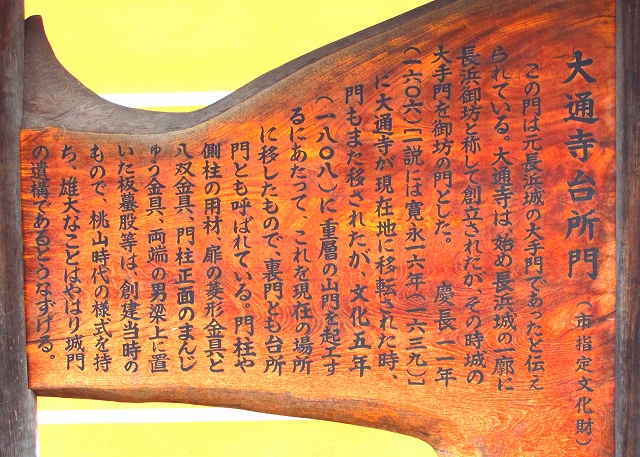 大通寺台所門(市指定文化財)
この門は元長浜城の大手門であったと伝え
られている。大通寺は、始め長浜城の一廓に
長浜御坊と称して創立されたが、その時城の
大手門を御坊の門とした。 慶長一一年
(一六〇六)[一説には寛永一六年(一六三九)]
に大通寺が現在地に移転された時、
門もまた移されたが、文化五年
(一八〇八)に重層の山門を起工す
るにあたって、これを現在の場所
に移したもので、裏門とも台所
門とも呼ばれている。門柱や
側柱の用材、扉の菱形金具と
八双金具、門柱正面のまんじ
ゅう金具、両端の男梁上に置
いた板蟇股等は、創建当時の
もので、桃山時代の様式を持
ち、雄大なことはやはり城門
の遺構であるとうなずける。